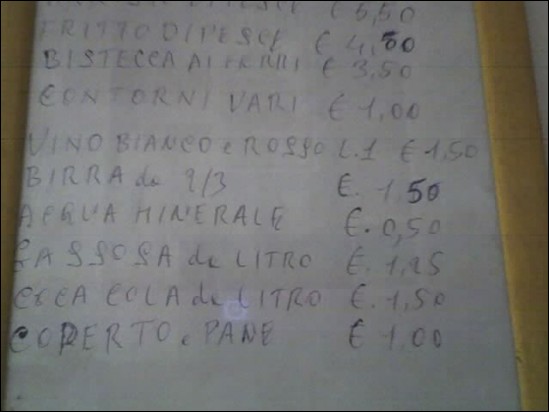 € 5,50
FRITTO DI PESCE € 4,50
BISTECCA AI FERRI € 3,50
CONTORNI VARI € 1,00
VINO BIANCO e ROSSO L.1 € 1,50
BIRRA da 2/3 €. 1,50
ACQUA MINERALE €. 0,50
GASSOSA da LITRO €. 1,25
COCA COLA da LITRO €. 1,50
COPERTO e PANE € 1,00